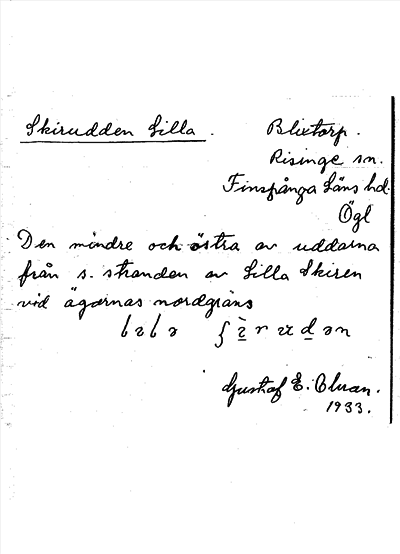 Skirudden Lilla.
Blixtorp.
Risinge sn.
Finspånga läns hd.
Ögl
Den mindre och östra av uddarna
från s. stranden av Lilla Skiren
vid ägornas nordgräns
Gustaf E.
1933.